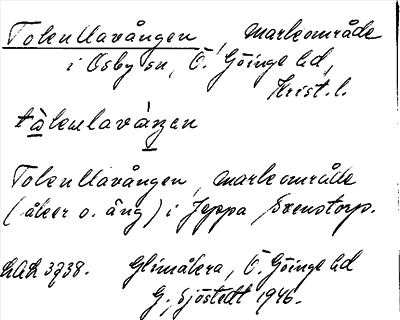 Tokullavången, markområde
i Osby sn, Ö. Göinge hd,
Krist. l.
tåkulavången
Tokullavången, markområde
(åker o. äng) i Jeppa Svenstorp.
LAL 3738. Glimåkra, Ö. Göinge hd
G. Sjöstedt 1946.